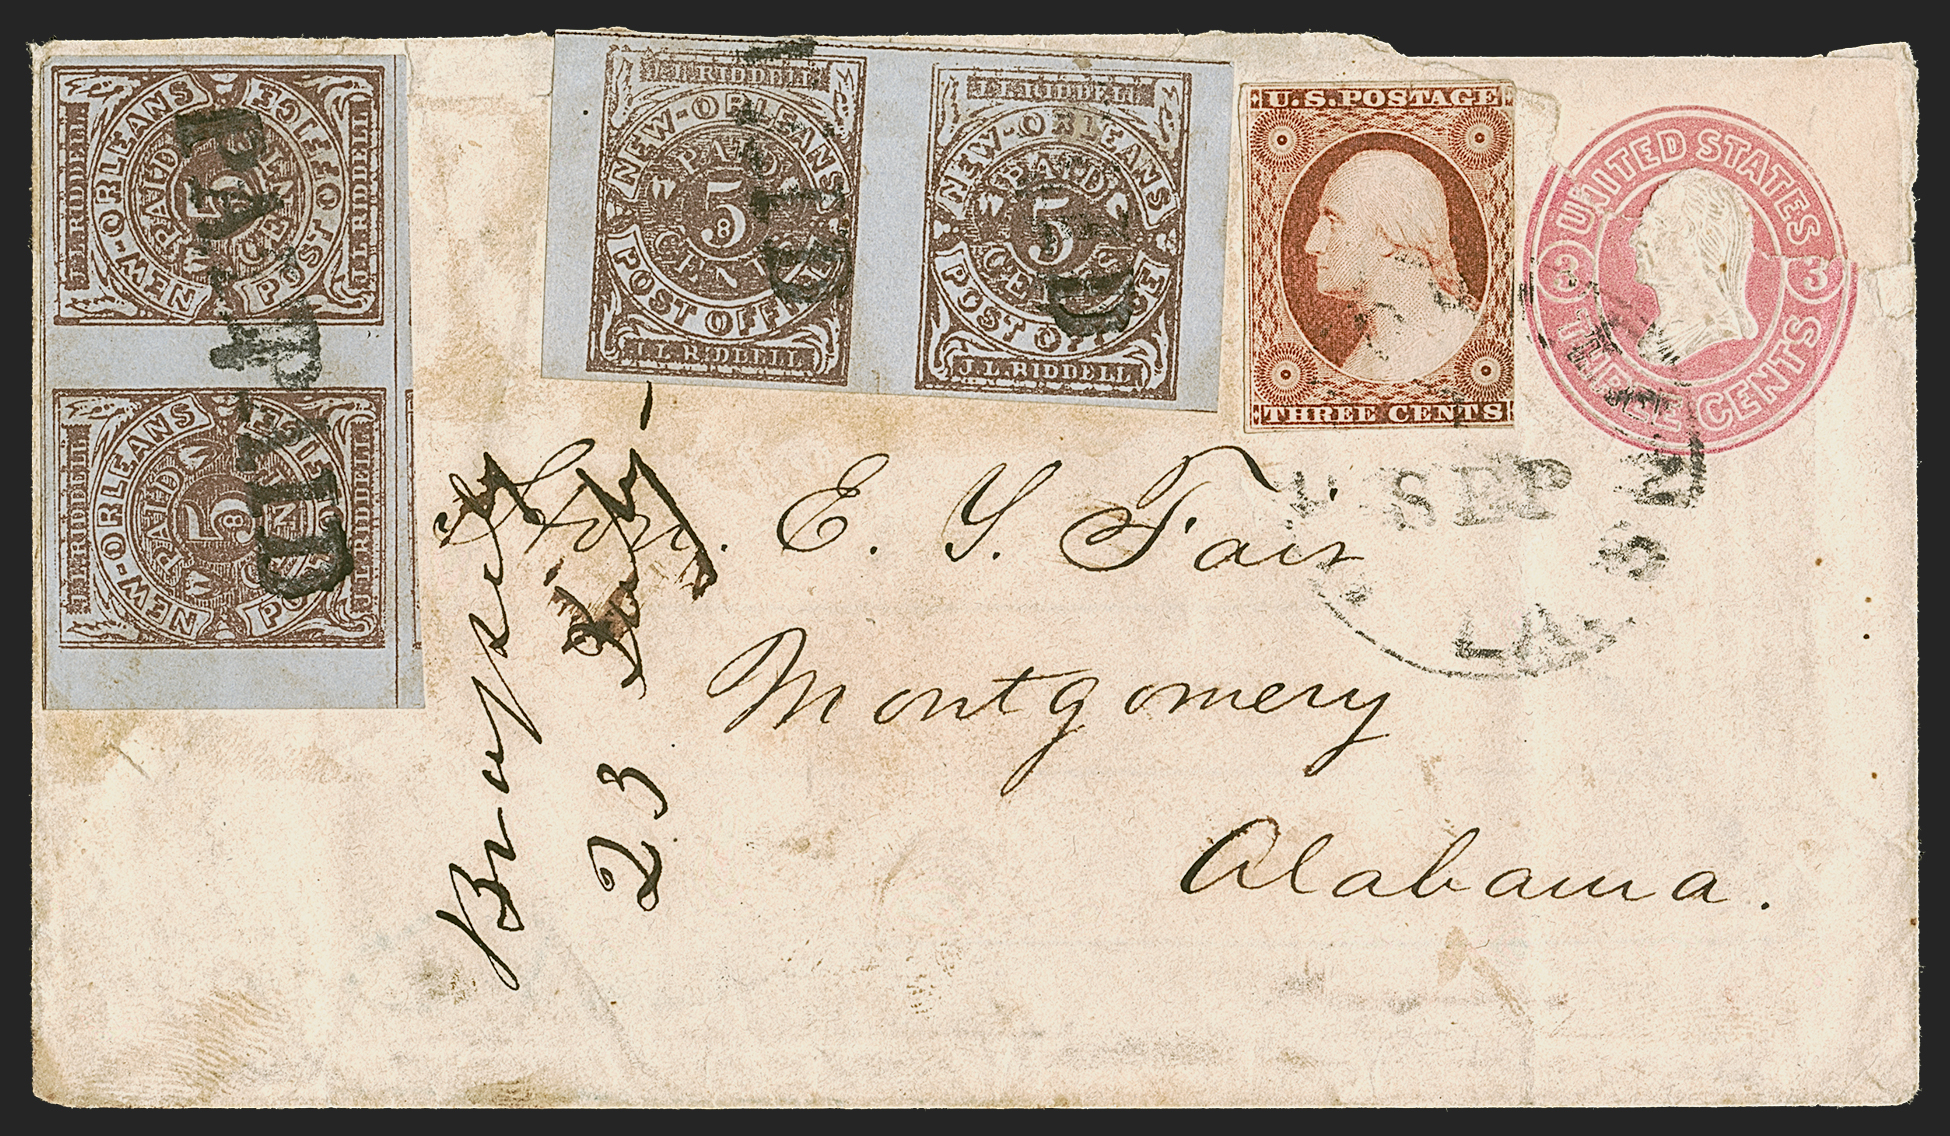 J.L.RIDDELL
NEW-ORLEANS
PAID
5
CENTS
POST OFFICE
J.L.RIDDELL
J.L.RIDDELL
NEW-ORLEANS
PAID
5
POST OFFICE
J.L.RIDDELL
J.L.RIDDELL
NEW-ORLEANS
PAID
5
CENTS
POST OFFICE
J.L.RIDDELL
J.L.RIDDELL
NEW-ORLEANS
PAID
5
CENTS
POST OFFICE
J.L.RIDDELL
PAID
PAID
PAID
U.S. POSTAGE
THREE CENTS
UNITED STATES
3 3
THREE CENTS
SEP
LA
Hon. E. Y. Fair
Montgomery
Alabama.
23